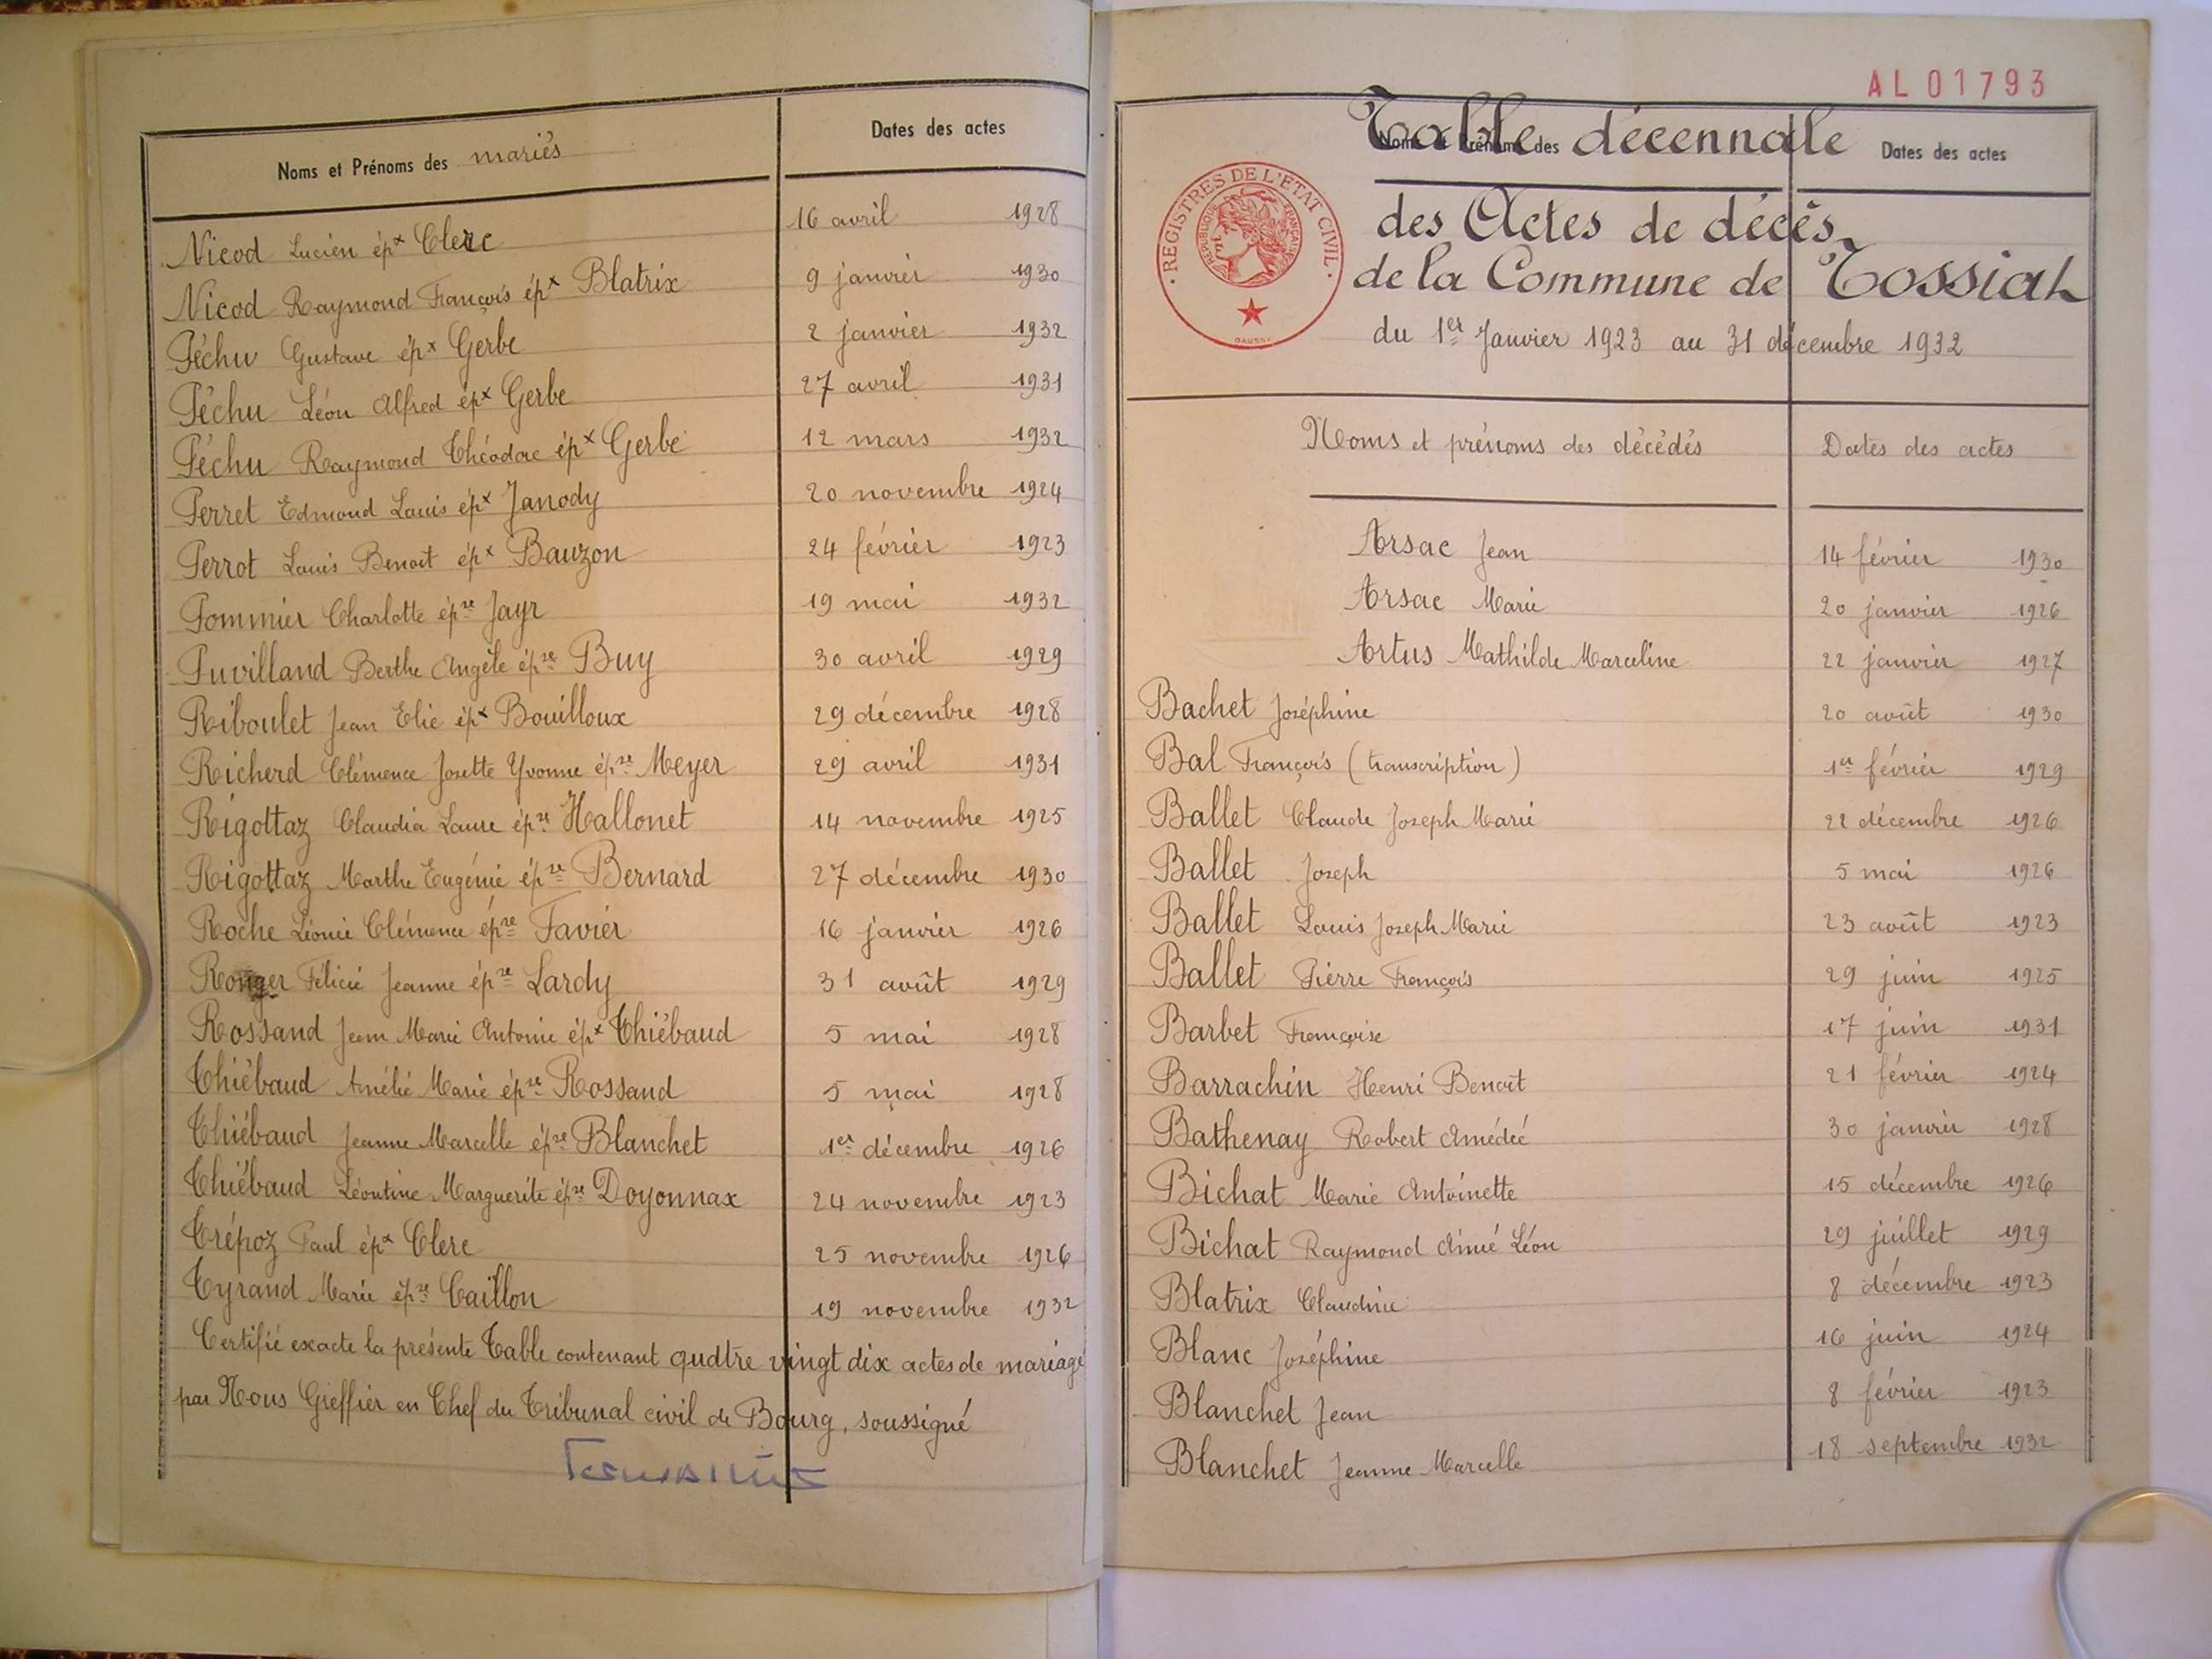 Noms et Prénoms des mariés
Dates des actes
Nicod Lucien épx Clerc 16 avril 1928
Nicod Raymond François épx Blatrix 9 janvier 1930
Péchu Gustave épx Gerbe 2 janvier 1932
Péchu Léon Alfred épx Gerbe 27 avril 1931
Péchu Raymond Théodore épx Gerbe 12 mars 1932
Perret Edmond Louis épx Janody 20 novembre 1924
Perrot Louis Benoit épx Bauzon 24 février 1923
Pommier Charlotte épse Jayr 19 mai 1932
Puvilland Berthe Angèle épse Buy 30 avril 1929
Riboulet Jean Elie épx Bouilloux 29 décembre 1928
Richerd Clémence Josette Yvonne épse Meyer 29 avril 1931
Rigottaz Claudia Laure épse Hallonet 14 novembre 1925
Rigottaz Marthe Eugénie épse Bernard 27 décembre 1930
Roche Léonie Clémence épse Favier 16 janvier 1926
Ronger Félicie Jeanne épse Lardy 31 août 1929
Rossand Jean Marie Antonin épx Thiébaud 5 mai 1928
Thiébaud Amélie Marie épse Rossand 5 mai 1928
Thiébaud Jeanne Marcelle épse Blanchet 1er décembre 1926
Thiébaud Léontine Marguerite épse Doyonnax 24 novembre 1923
Trépoz Paul épx Clerc 25 novembre 1926
Tyrand Marie épse Caillon 19 novembre 1932
Certifié exacte la présente Table contenant quatre vingt dix actes de mariage
par Nous Greffier en Chef du Tribunal civil de Bourg, soussigné
AL01793
Noms et Prénoms des
Dates des actes
Table décennale
des Actes de décès
de la Commune de Tossiat
du 1er Janvier 1923 au 31 décembre 1932
REGISTRES DE L'ÉTAT CIVIL
RÉPUBLIQUE FRANÇAISE
Noms et prénoms des décédés Dates des actes
Arsac Jean 14 février 1930
Arsac Marie 20 janvier 1926
Artus Mathilde Marceline 22 janvier 1927
Bachet Joséphine 20 août 1930
Bal François (transcription) 1er février 1929
Ballet Claude Joseph Marie 22 décembre 1926
Ballet Joseph 5 mai 1926
Ballet Louis Joseph Marie 23 août 1923
Ballet Pierre François 29 juin 1925
Barbet Françoise 17 juin 1931
Barrachin Henri Benoit 21 février 1924
Bathenay Robert Amédée 30 janvier 1928
Bichat Marie Antoinette 15 décembre 1926
Bichat Raymond Aimé Léon 29 juillet 1929
Blatrix Claudine 8 décembre 1923
Blanc Joséphine 16 juin 1924
Blanchet Jean 8 février 1923
Blanchet Jeanne Marcelle 18 septembre 1932